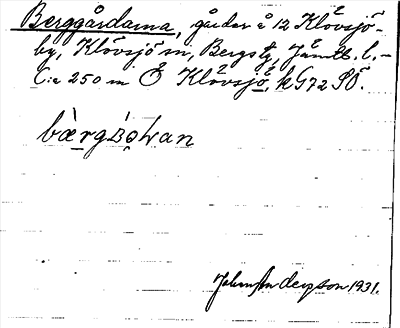 Berggårdarna, gårdar å 12 Klövsjö-
by, Klövsjö sn, Bergs tg, Jämtl. l.-
C:a 250 m Ö Klövsjö, k G72 SÖ.
bæ̀rgaṣn
John Anderson 1931.